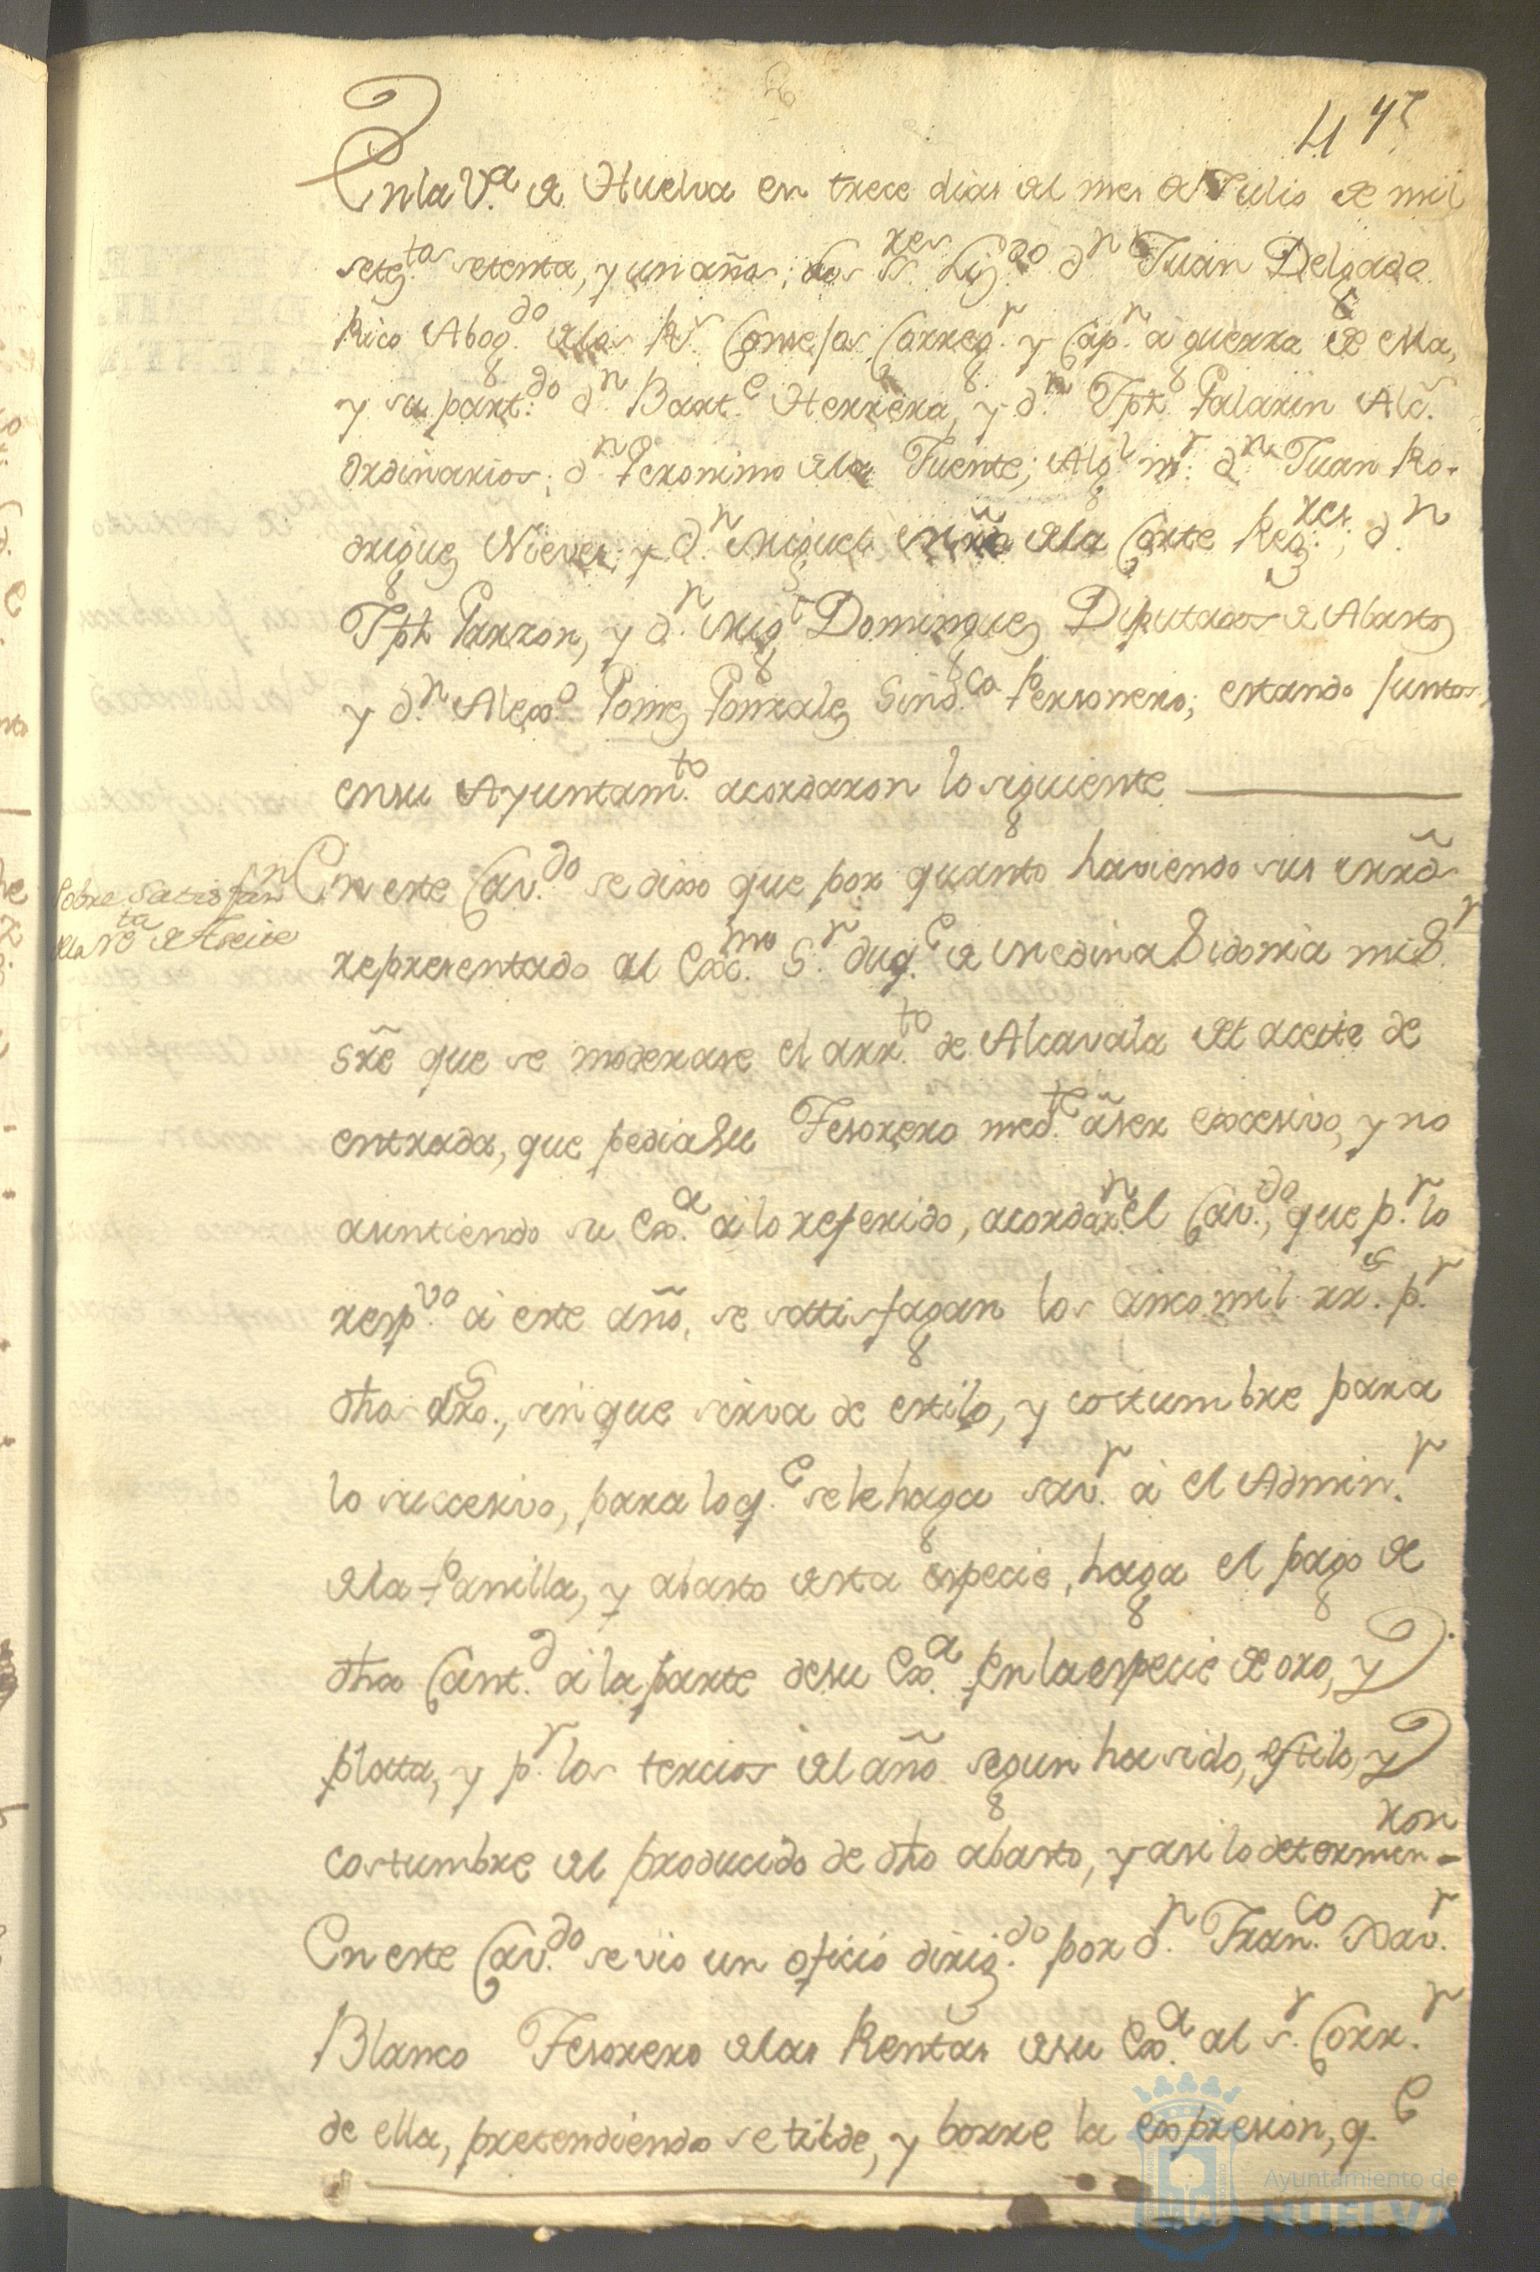 47
En la V.ª de Huelva en trece dias del mes de Julio de mil
seteg.tos setenta, y un años, los SS.res Liz.do d.n Juan Delgado
Rico Abog.do de los R.s Consejos Correg.r y Cap.n à guerra de ella,
y su part.do d.n Bart.e Herrera, y d.n Jph. Galarin Alc.
Ordinarios; d.n Geronimo de la Fuente, Alg.l m.r d.n Juan Ro-
driguez Nieves, y d.n Miguel de la Corte Reg.res; d.n
Jph Garzon, y d.n Mig.l Dominguez Diputados de Abastos
y d.n Alexo. Gomez Gonzalez Sind.co Personero; estando juntos
en su Ayuntam.to acordaron lo siguiente
Sobre satisfan
de la rta de Aceite
En este Cav.do se dixo que por quanto haviendo sus mrãd.s
representado al Exc.mo S.r duq.e de Medina Sidonia mi S.r
sre que se moderase el arr.to de Alcavala del aceite de
entrada, que pedia su Tesorero med.te àser excesivo, y no
asintiendo su Ex.ª à lo referido, acordar.n el Cav.do, que p.r lo
resp.vo à este año, se satisfagan los cinco mil rr.s p.r
dhos dro.s, sin que sirva de estilo, y costumbre para
lo succesivo, para lo q.e se le haga sav.r à el Admin.r
de la Panilla, y abasto desta especie, haga el pago de
dha Cant.d à la parte de su Ex.ª en la especie de oro, y
plata, y p.r los tercios del año segun ha sido, estilo, y
costumbre del producido de dho abasto, y asi lo determin-ron
En este Cav.do se vio un oficio dirig.do por d.n Fran.co Xav.r
Blanco Tesorero de las Rentas de su Ex.ª al s.r Corr.r
de ella, pretendiendo se tilde, y borre la expresion, q.e
Ayuntamiento de
HUELVA